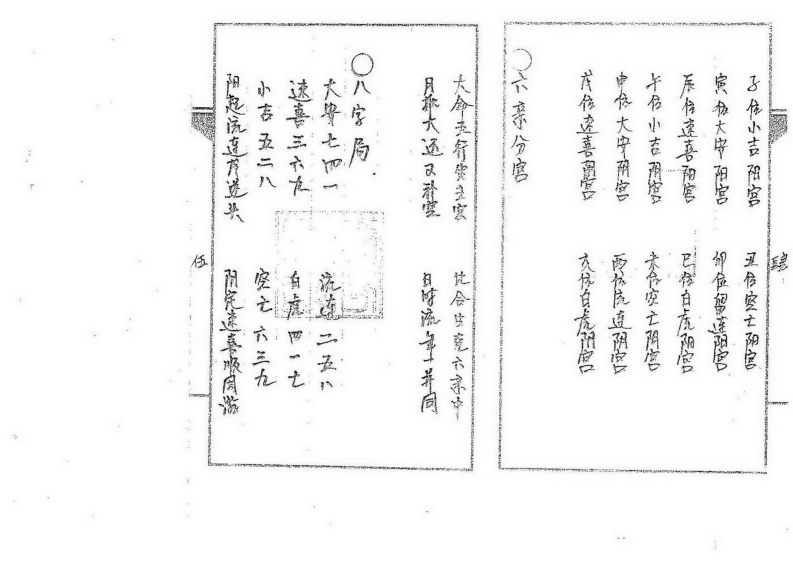 肆
子位小吉阳宫　丑位空亡阳宫
寅位大安阳宫　卯位留连阳宫
辰位速喜阳宫　巳位白虎阳宫
午位小吉阴宫　未位空亡阴宫
申位大安阴宫　酉位流连阴宫
戌位速喜阴宫　亥位白虎阴宫
〇六亲分宫
大命五行安主宫　比合生克六亲中
月排大运又补空　日时流年一并同
〇八字局
大安七四一　流连二五八
速喜三六九　白虎四一七
小吉五二八　空亡六三九
阳起流连逆头　阴完速喜顺同游
伍